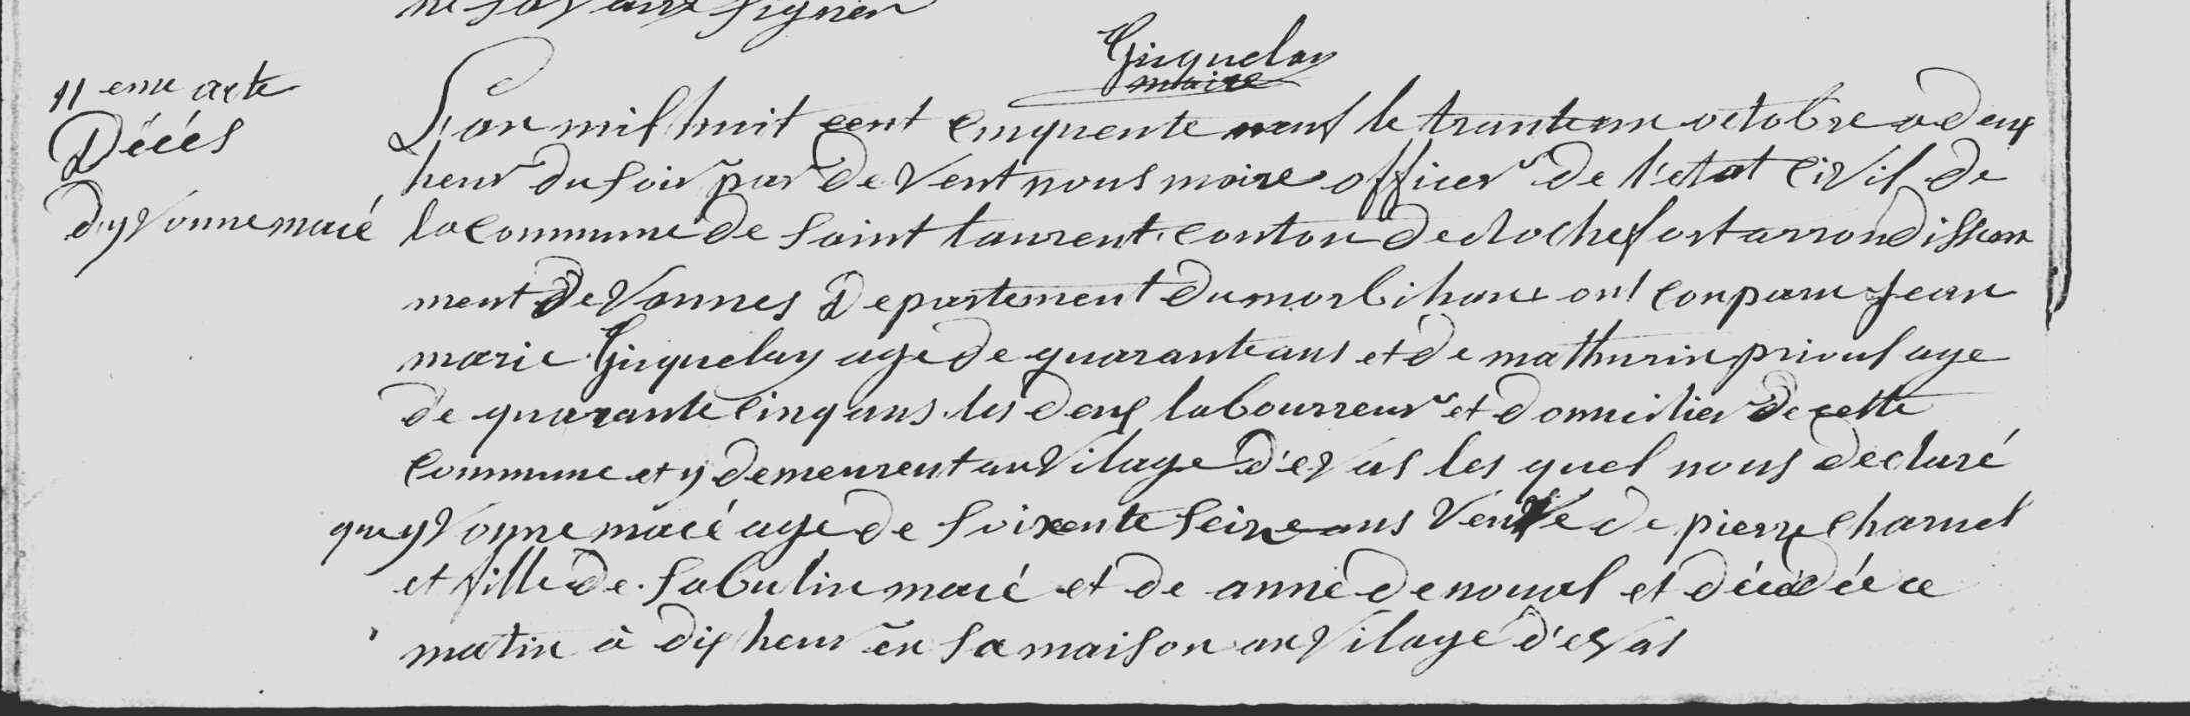 ne savant signer
Guquelay
maire
11 eme acte
Décés
d'yvonne macé
L'an mil huit cent cinquente neuf le trunteun octobre a deux
heur du soir par de vent nous maire officer de l'etat civil de
la commune de saint laurent conton de rochefort arrondissem
ment de vannes Departement du morbihan ont conparu jean
marie Guquelay age de quarante ans et de mathurin prioul age
de quarante cinq ans les deux labourreur et domicilier de cette
commune et y demeurent au vilage d'evas les quel nous declaré
que yvonne macé age de soixente seize ans veuve de pierre charuel
et fille de sabulin macé et de anne denoual et décédée ce
matin à dix heur en sa maison au vilage d'evas